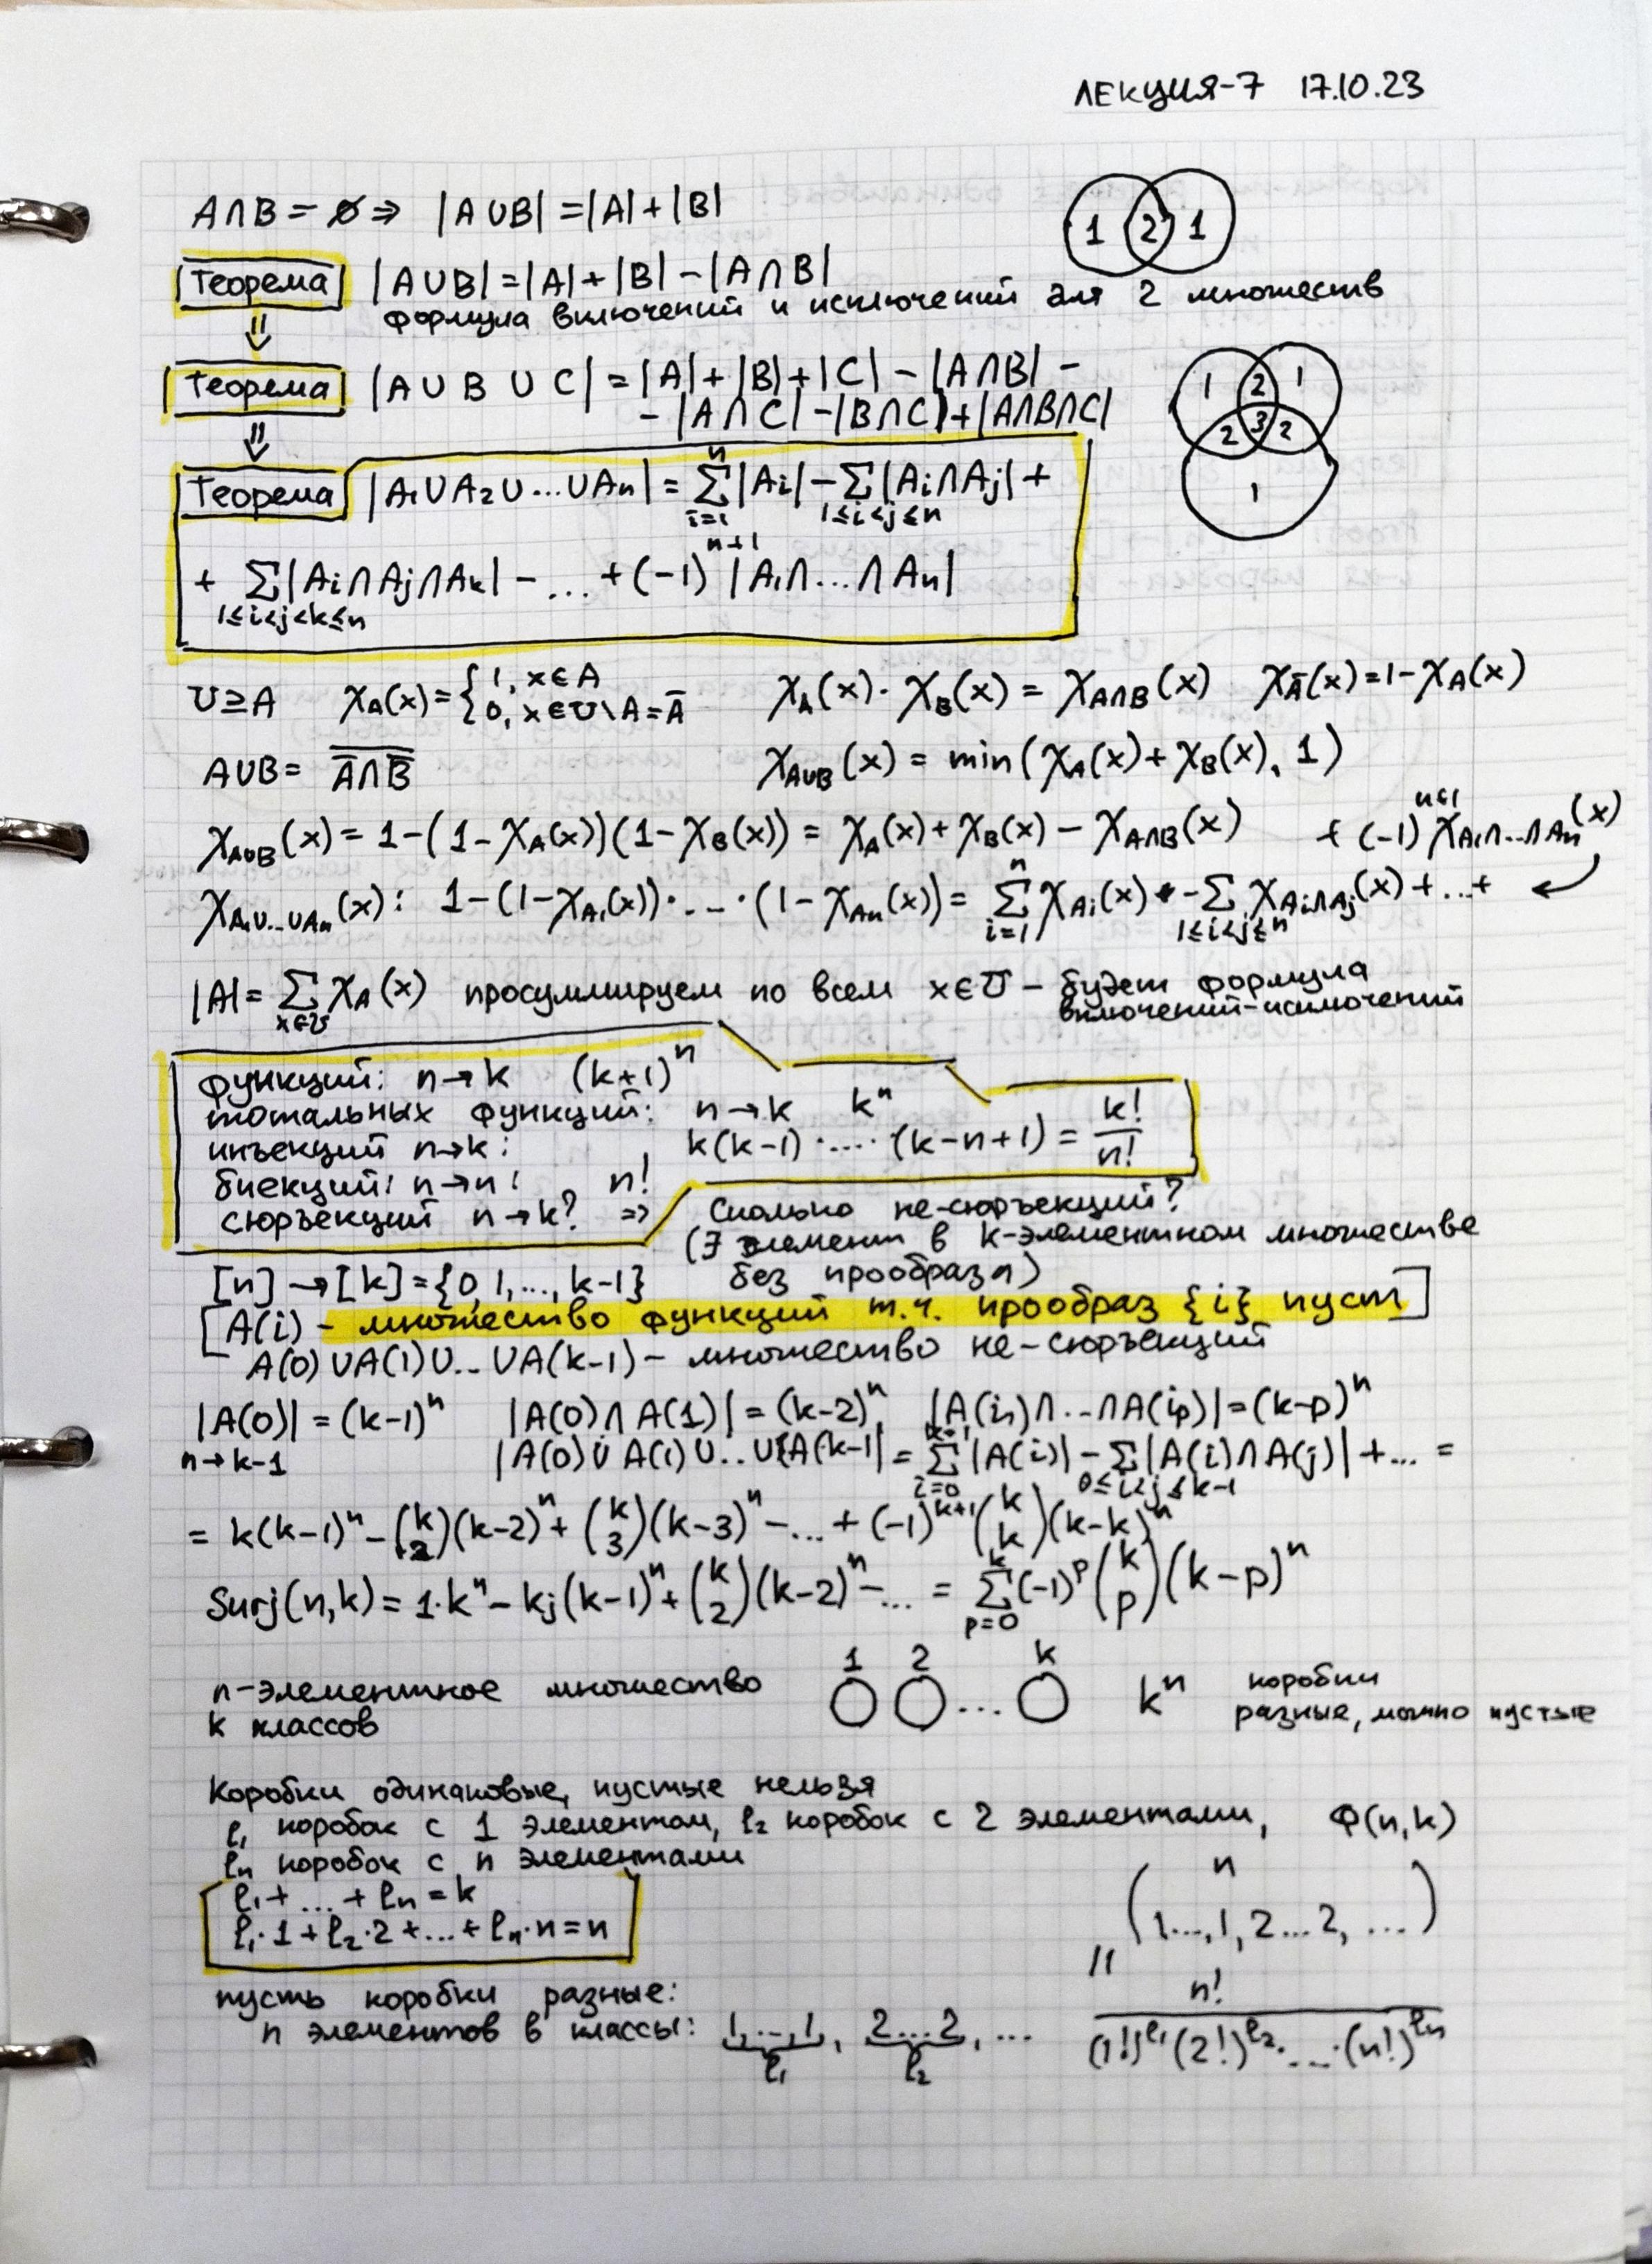 ЛЕКЦИЯ-7 17.10.23
A∩B = ∅ ⇒ |A∪B| = |A| + |B|
1 2 1
Теорема |A∪B| = |A| + |B| − |A∩B|
формула включений и исключений для 2 множеств
⇓
Теорема |A ∪ B ∪ C| = |A| + |B| + |C| − |A∩B| −
− |A∩C| − |B∩C| + |A∩B∩C|
1 2 1
2 3 2
1
⇓
Теорема |A₁∪A₂∪...∪Aₙ| = ∑_{i=1}^{n} |Aᵢ| − ∑_{1≤i<j≤n} |Aᵢ∩Aⱼ| +
+ ∑_{1≤i<j<k≤n} |Aᵢ∩Aⱼ∩Aₖ| − ... + (−1)^{n+1} |A₁∩...∩Aₙ|
U⊇A χ_A(x) = { 1, x∈A
0, x∈U\A=Ā
χ_A(x)·χ_B(x) = χ_{A∩B}(x) χ_Ā(x) = 1−χ_A(x)
A∪B = \overline{Ā∩B̄} χ_{A∪B}(x) = min(χ_A(x)+χ_B(x), 1)
χ_{A∪B}(x) = 1−(1−χ_A(x))(1−χ_B(x)) = χ_A(x)+χ_B(x) − χ_{A∩B}(x) + (−1)^{n+1} χ_{A₁∩...∩Aₙ}(x)
χ_{A₁∪...∪Aₙ}(x): 1−(1−χ_{A₁}(x))·...·(1−χ_{Aₙ}(x)) = ∑_{i=1}^{n} χ_{Aᵢ}(x) − ∑_{1≤i<j≤n} χ_{Aᵢ∩Aⱼ}(x) +...+
|A| = ∑_{x∈U} χ_A(x) просуммируем по всем x∈U – будет формула
включений-исключений
функций: n→k (k+1)ⁿ
тотальных функций: n→k kⁿ
инъекций n→k: k(k−1)·....·(k−n+1) = k!/n!
биекций: n→n: n!
сюръекций n→k? ⇒ Сколько не-сюръекций?
(∃ элемент в k-элементном множестве
без прообраза)
[n]→[k]={0,1,...,k−1}
[A(i) – множество функций т.ч. прообраз {i} пуст]
A(0)∪A(1)∪..∪A(k−1) – множество не-сюръекций
|A(0)| = (k−1)ⁿ |A(0)∩A(1)| = (k−2)ⁿ, |A(i₁)∩...∩A(i_p)| = (k−p)ⁿ
n→k−1 |A(0)∪A(1)∪..∪A(k−1| = ∑_{i=0}^{k−1} |A(i)| − ∑_{0≤i<j≤k−1} |A(i)∩A(j)| +... =
= k(k−1)ⁿ − (k 2)(k−2)ⁿ + (k 3)(k−3)ⁿ − ... + (−1)^{k+1} (k k)(k−k)ⁿ
Surj(n,k) = 1·kⁿ − k(k−1)ⁿ + (k 2)(k−2)ⁿ − ... = ∑_{p=0}^{k} (−1)^p (k p)(k−p)ⁿ
1 2 k
n-элементное множество ... kⁿ коробки
k классов разные, можно пустые
Коробки одинаковые, пустые нельзя
ℓ₁ коробок с 1 элементом, ℓ₂ коробок с 2 элементами, Φ(n,k)
ℓₙ коробок с n элементами
ℓ₁+...+ℓₙ = k
ℓ₁·1+ℓ₂·2+...+ℓₙ·n = n
(n 1...,1, 2...2, ...)
=
пусть коробки разные:
n элементов в классы: 1,...,1, 2...2, ...
ℓ₁ ℓ₂
n!
(1!)^{ℓ₁}(2!)^{ℓ₂}·...·(n!)^{ℓₙ}